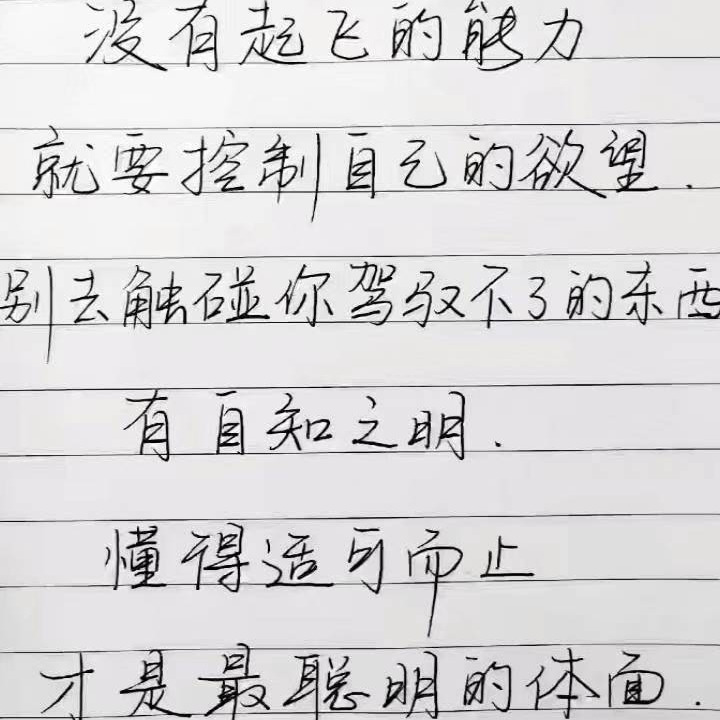 没有起飞的能力
就要控制自己的欲望.
别去触碰你驾驭不了的东西
有自知之明.
懂得适可而止
才是最聪明的体面.